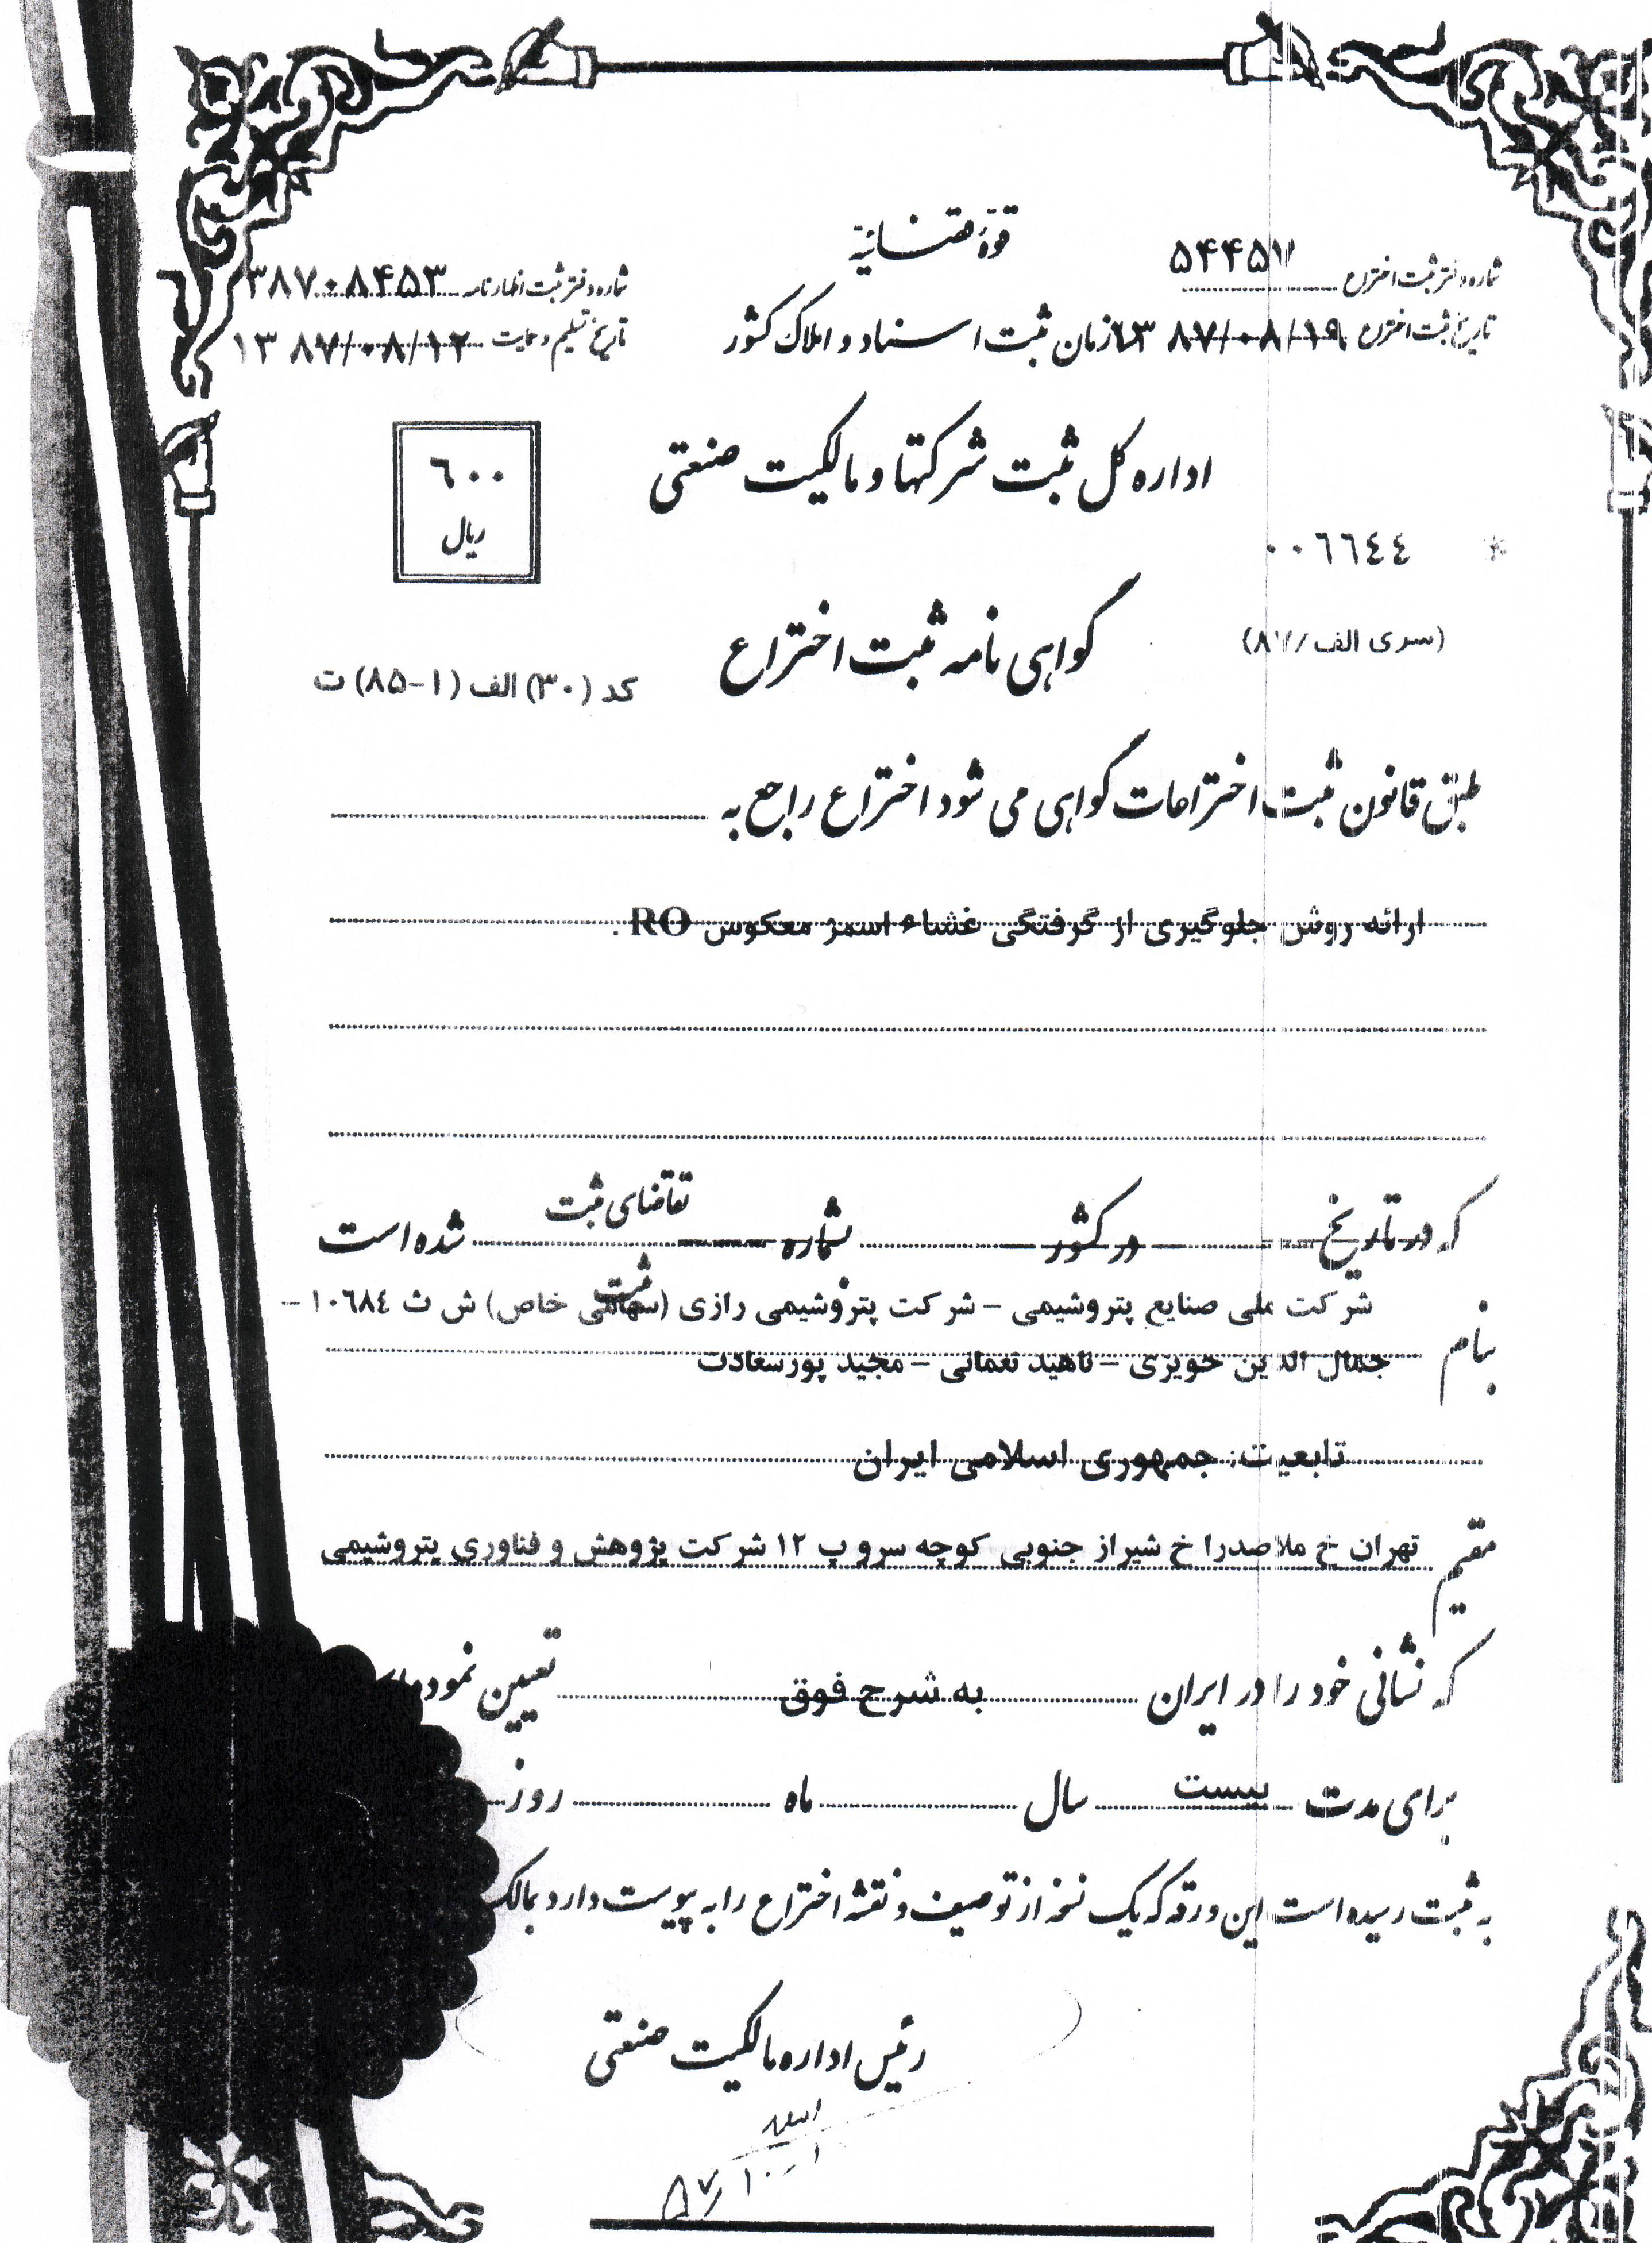 قوهٔ قضائیه
شماره دفتر ثبت اختراع ۵۴۴۵۷
شماره دفتر ثبت اظهارنامه ۳۸۷۰۸۴۵۳
تاریخ ثبت اختراع ۱۳۸۷/۰۸/۱۹
سازمان ثبت اسناد و املاک کشور
تاریخ تسلیم و حمایت ۱۳۸۷/۰۸/۱۲
اداره کل ثبت شرکتها و مالکیت صنعتی
۶۰۰
ریال
۰۰٦٦٤٤
گواهی نامه ثبت اختراع
(سری الف/۸۷)
کد (۳۰) الف (۱-۸۵) ت
طبق قانون ثبت اختراعات گواهی می شود اختراع راجع به
ارائه روش جلوگیری از گرفتگی غشاء اسمز معکوس RO .
که در تاریخ در کشور شماره تقاضای ثبت شده است
ثبت
بنام شرکت ملی صنایع پتروشیمی – شرکت پتروشیمی رازی (سهامی خاص) ش ث ۱۰٦۸٤ –
جمال الدین حویزی – ناهید نعمانی – مجید پورسعادت
تابعیت: جمهوری اسلامی ایران
مقیم تهران خ ملاصدرا خ شیراز جنوبی کوچه سرو پ ۱۲ شرکت پژوهش و فناوری پتروشیمی
که نشانی خود را در ایران به شرح فوق تعیین نموده
برای مدت بیست سال ماه روز
به ثبت رسیده است این ورقه که یک نسخه از توصیف و نقشه اختراع را به پیوست دارد بمالک
رئیس اداره مالکیت صنعتی